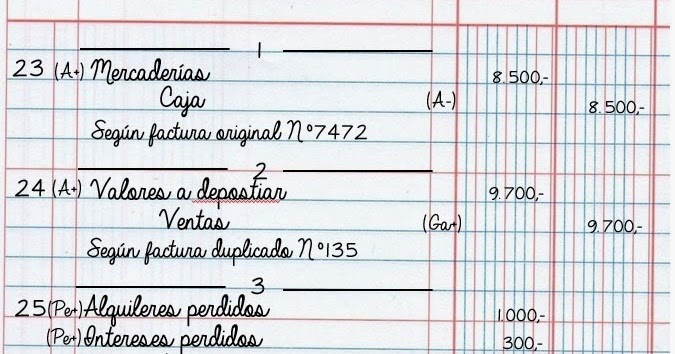 1
23 (A+) Mercaderías 8.500,-
Caja (A-) 8.500,-
Según factura original N°7472
2
24 (A+) Valores a depostiar 9.700,-
Ventas (Ga+) 9.700,-
Según factura duplicado N°135
3
25 (Pe+) Alquileres perdidos 1.000,-
(Pe+) Intereses perdidos 300,-